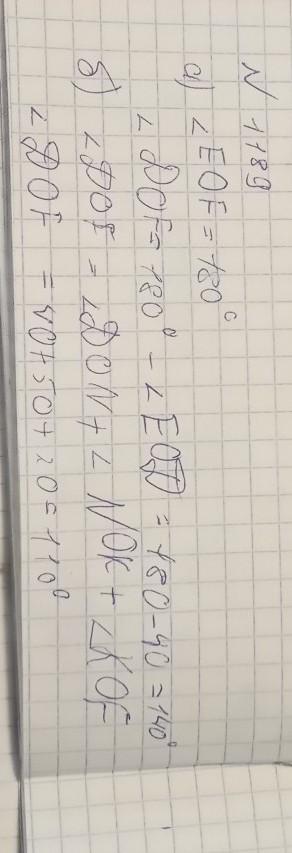 N 1189
а) ∠EOF = 180°
∠DOF = 180° - ∠EOD = 180-40 = 140°
б) ∠DOF = ∠DON + ∠NOK + ∠KOF
∠DOF = 40+50+20=110°